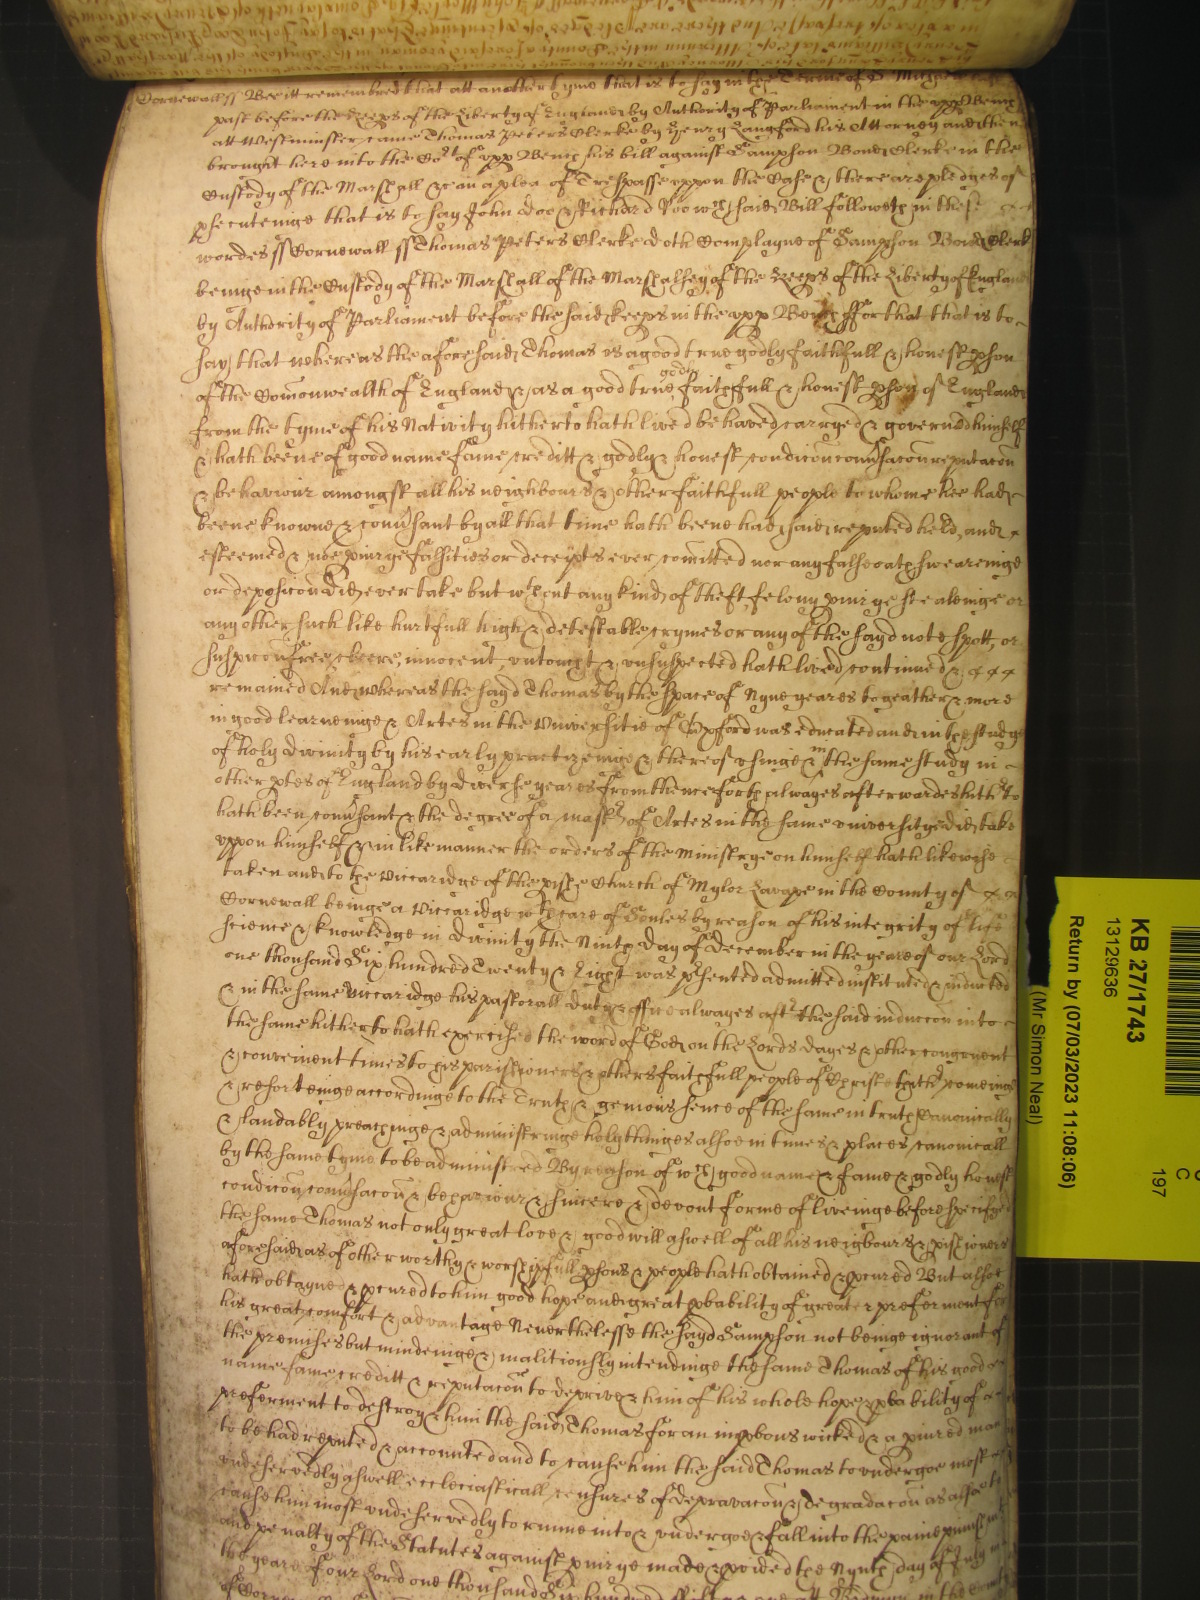 Cornewall ss Bee itt remembred that att another tyme that is to say in the Terme of St Michaell last
past before the Keeps of the Liberty of England by Authority of Parliament in the upp Bench
att Westminster came Thomas Peters Clerke by Henry Langford his Attorney and then
brought here into the Cort of upp Bench his bill against Sampson Bond Clerke in the
Custody of the Marshall &c in a plea of Trespasse uppon the Case & there are pledges of
psecuteinge that is to say John Doo & Richard Roo wch said Bill followeth in thes
wordes ss Cornewall ss Thomas Peters Clerke doth Complayne of Sampson Bond Clerk
beinge in the Custody of the Marshall of the Marshalsey of the Keeps of the Liberty of England
by Authority of Parliament before the said keeps in the upp Bench ffor that that is to
say that whereas the aforesaid Thomas is a good true godly faithfull & honest pson
of the Comonwealth of England & as a good true godly faithfull & honest pson of England
from the tyme of his Nativity hitherto hath lived behaved carryed & governed himself
& hath beene of good name fame creditt & godly & honest condicon convsacon reputacon
& behaviour amongst all his neighbours & other faithfull people to whome hee had
beene knowne & convsant by all that time hath beene had said reputed held and
esteemed & noe piurye falsities or deceipts ever comitted nor any false oath sweareinge
or deposicon did ever take but wthout any kind of theft felony piurye stealeinge or
any other such like hurtfull high & detestable crymes or any of the sayd note spott or
suspicon free cleere innocent untoucht & unsuspected hath lived continued &
remained And whereas the sayd Thomas by the space of Nyne yeares togeather & more
in good learneinge & Artes in the Universitie of Oxford was educated and in the studye
of holy divinity by his early practizeinge & thereof & in the same study in
other ptes of England by diverse yeares from thence forth alwayes afterwardes hithto
hath been convsant & the degree of a mastr of Artes in the same university did take
uppon himself & in like manner the orders of the Ministrye on himself hath likewise
taken and to the Viccaridge of the pishe Church of Mylor Lavape in the County of
Cornewall beinge a Viccaridge wth care of Soules by reason of his integrity of life
science & knowledge in divinity the Ninth day of December in the yeare of our Lord
one thousand Six hundred Twenty & Eight was psented admitted instituted & inducted
& in the same Viccaridge his pastorall duty & office alwayes aftr the said induccon into
the same hitherto hath exercised the word of God on the Lords dayes & other congruent
& convenient times to his parishioners & others faithfull people of Christ thither comeinge
& resorteinge accordinge to the Truth & genious sence of the same in truth Canonically
& laudably preachinge & administringe holy thinges alsoe in times & places canonicall
by the same tyme to be administred By reason of wch good name & fame & godly honest
condicon convsacon & behaviour & sincere & devout forme of liveinge before specifyed
the same Thomas not only great love & good will aswell of all his neigbours & pishioners
aforesaid as of other worthy & worshipfull psons & people hath obtained & pcured But alsoe
hath obtayned & pcured to him good hope and great pbability of greater preferment for
his great comfort & advantage Neverthelesse the sayd Sampson not beinge ignorant of
the premises but mindeinge & malitiously intendinge the same Thomas of his good
name fame creditt & reputacon to deprive & him of his whole hope & pbability of
preferment to destroy & him the said Thomas for an impbous wicked & a piured man
to be had reputed & accounted and to cause him the said Thomas to undergoe most
undeservedly aswell ecclesiasticall censures of depravacon & degradacon as alsoe to
cause him most undeservedly to runne into & undergoe & fall into the paine punishmt
and penalty of the Statutes against piurye made & pvided the Nynth day of July in
the yeare of our Lord one thousand Six hundred ffiftie
KB 27/1743
13129636
Return by (07/03/2023 11:08:06)
(Mr Simon Neal)
C
197